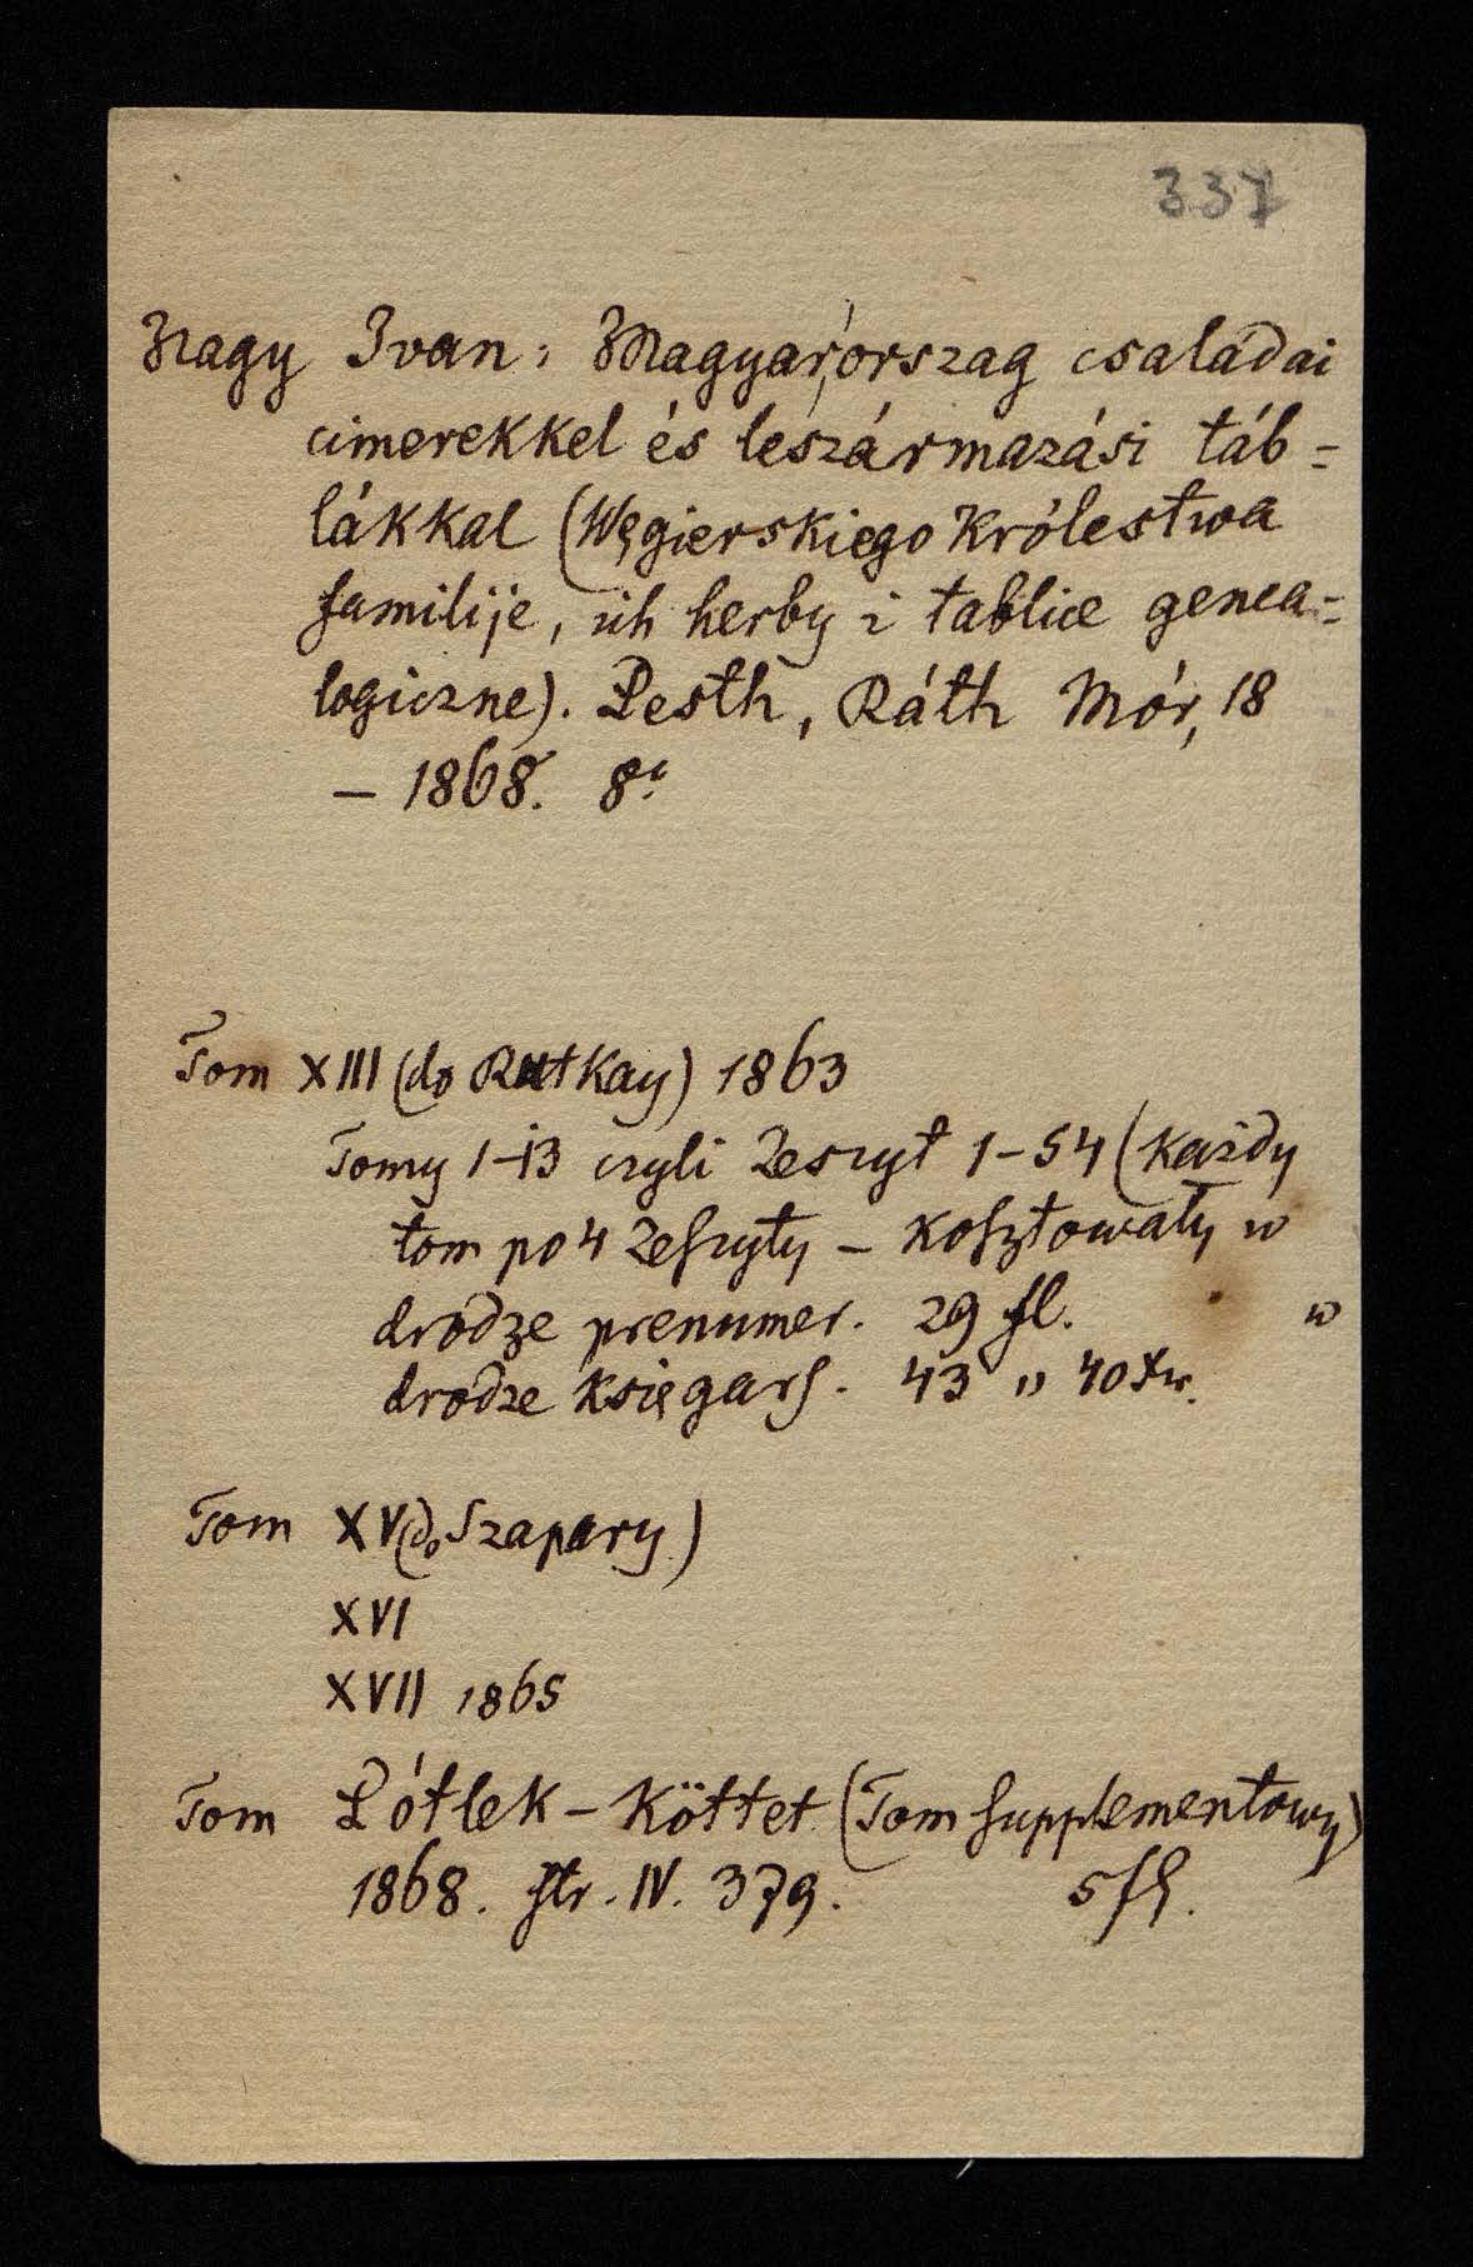 337
Nagy Ivan: Magyarország családai
cimerekkel és leszármazási táb=
lákkal (Węgierskiego Królestwa
familije, ich herby i tablice genea=
logiczne). Pesth, Ráth Mór, 18
– 1868. 8º
Tom XIII (do Rutkay) 1863
Tomy 1–13 czyli Zeszyt 1–54 (każdy
tom po 4 Zeszyty – kosztowały w
drodze prenumer. 29 fl. w
drodze księgars. 43 „ 40 xr.
Tom XV (do Szapary)
XVI
XVII 1865
Tom Pótlek-Köttet (Tom supplementowy)
1868. str. IV. 379. 5 fl.